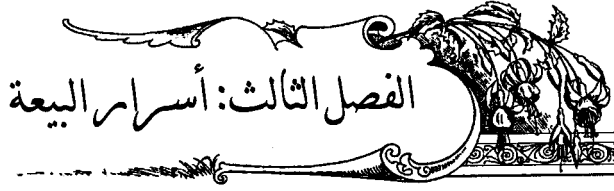 الفصل الثالث: أسرار البيعة